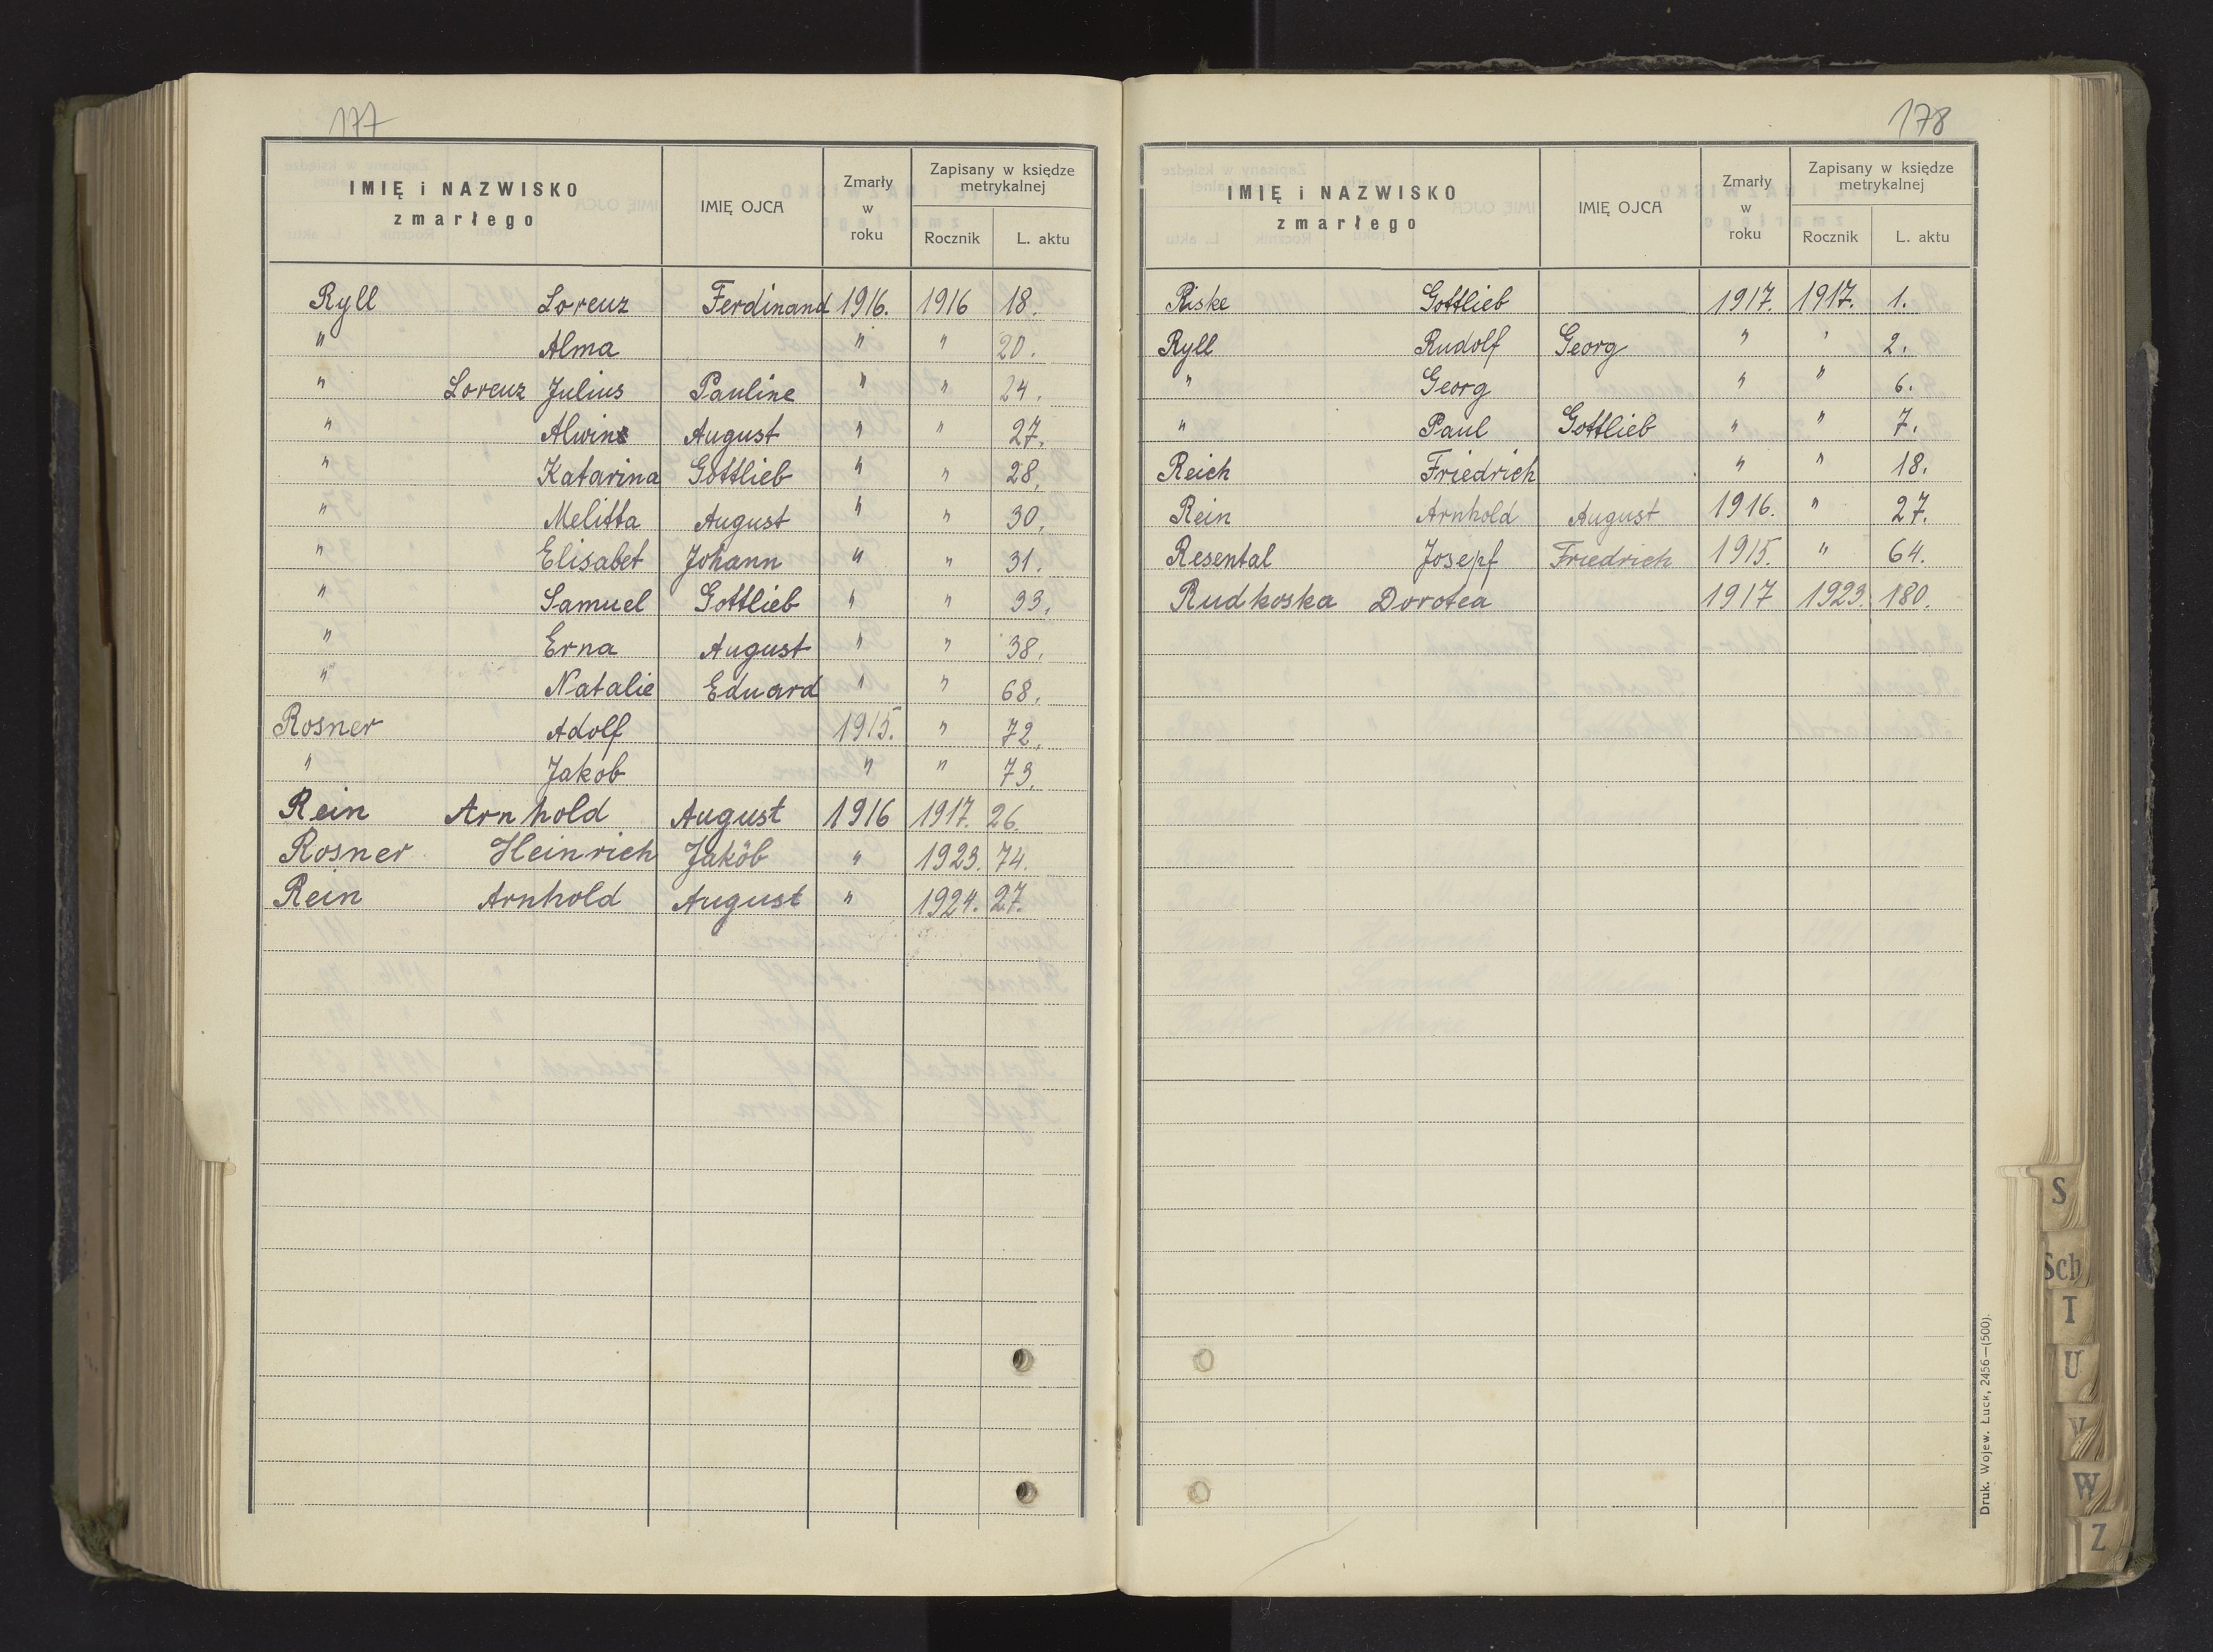 177
IMIĘ i NAZWISKO zmarłego IMIĘ OJCA Zmarły w roku Zapisany w księdze metrykalnej Rocznik L. aktu
Ryll Lorenz Ferdinand 1916. 1916 18.
" Alma " " 20.
" Lorenz Julius Pauline " " 24.
" Alwine August " " 27.
" Katarina Gottlieb " " 28.
" Melitta August " " 30.
" Elisabet Johann " " 31.
" Samuel Gottlieb " " 33.
" Erna August " " 38.
" Natalie Eduard " " 68.
Rosner Adolf 1915. " 72.
" Jakob " " 73.
Rein Arnhold August 1916 1917. 26.
Rosner Heinrich Jakób " 1923. 74.
Rein Arnhold August " 1924. 27.
178
IMIĘ i NAZWISKO zmarłego IMIĘ OJCA Zmarły w roku Zapisany w księdze metrykalnej Rocznik L. aktu
Riske Gottlieb 1917. 1917. 1.
Ryll Rudolf Georg " " 2.
" Georg " " 6.
" Paul Gottlieb " " 7.
Reich Friedrich " " 18.
Rein Arnhold August 1916. " 27.
Resental Josepf Friedrich 1915. " 64.
Rudkoska Dorotea 1917 1923. 180.
Druk. Wojew. Łuck, 2456—(500).
S
Sch
T
U
V
W
Z